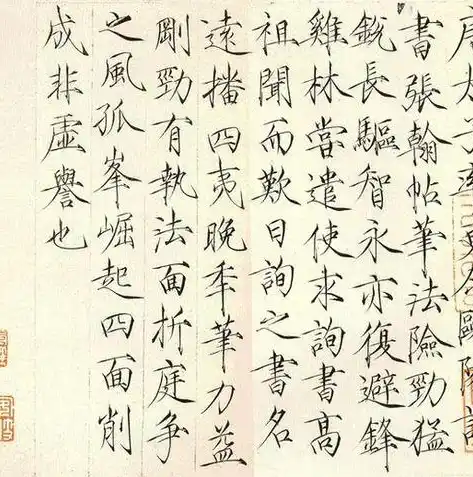 太子
書張翰帖筆法險勁猛
銳長驅智永亦復避鋒
雞林嘗遣使求詢書高
祖聞而歎日詢之書名
遠播四夷晚秊筆力益
剛勁有執法面折庭爭
之風孤峯崛起四面削
成非虛譽也